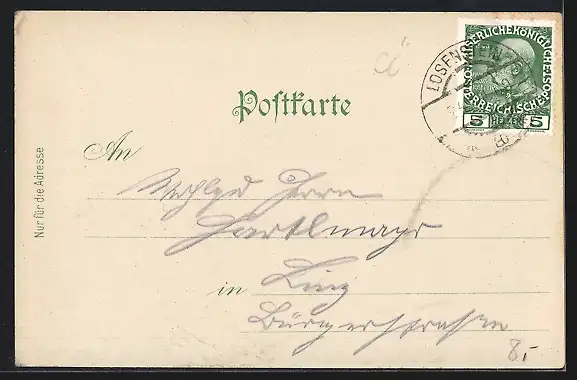 LOSENSTEIN
KAISERLICHE KÖNIGLICHE
ÖSTERREICHISCHE POST
5 HELLER 5
Postkarte
An
Wohlgeb Herrn
Hartlmayr
in Linz
Bürgerstrassen
8.-
Nur für die Adresse